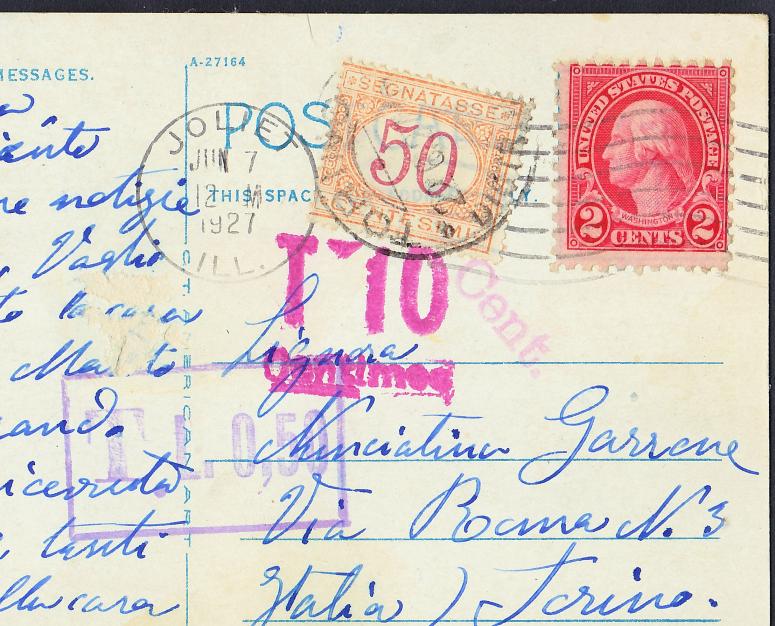 MESSAGES.
A-27164
POS
JOLIET
JUN 7
12 M
1927
ILL.
THIS SPAC
SEGNATASSE
50
CENTESIMI
UNITED STATES POSTAGE
WASHINGTON
2 CENTS 2
T 10
Centimes
Cent.
T. L. 0,50
C.T. AMERICAN ART
ne notizie
to la cara
tanti
lla cara
Signora
Nunciatina Garrone
Via Roma N. 3
Italia) Torino.